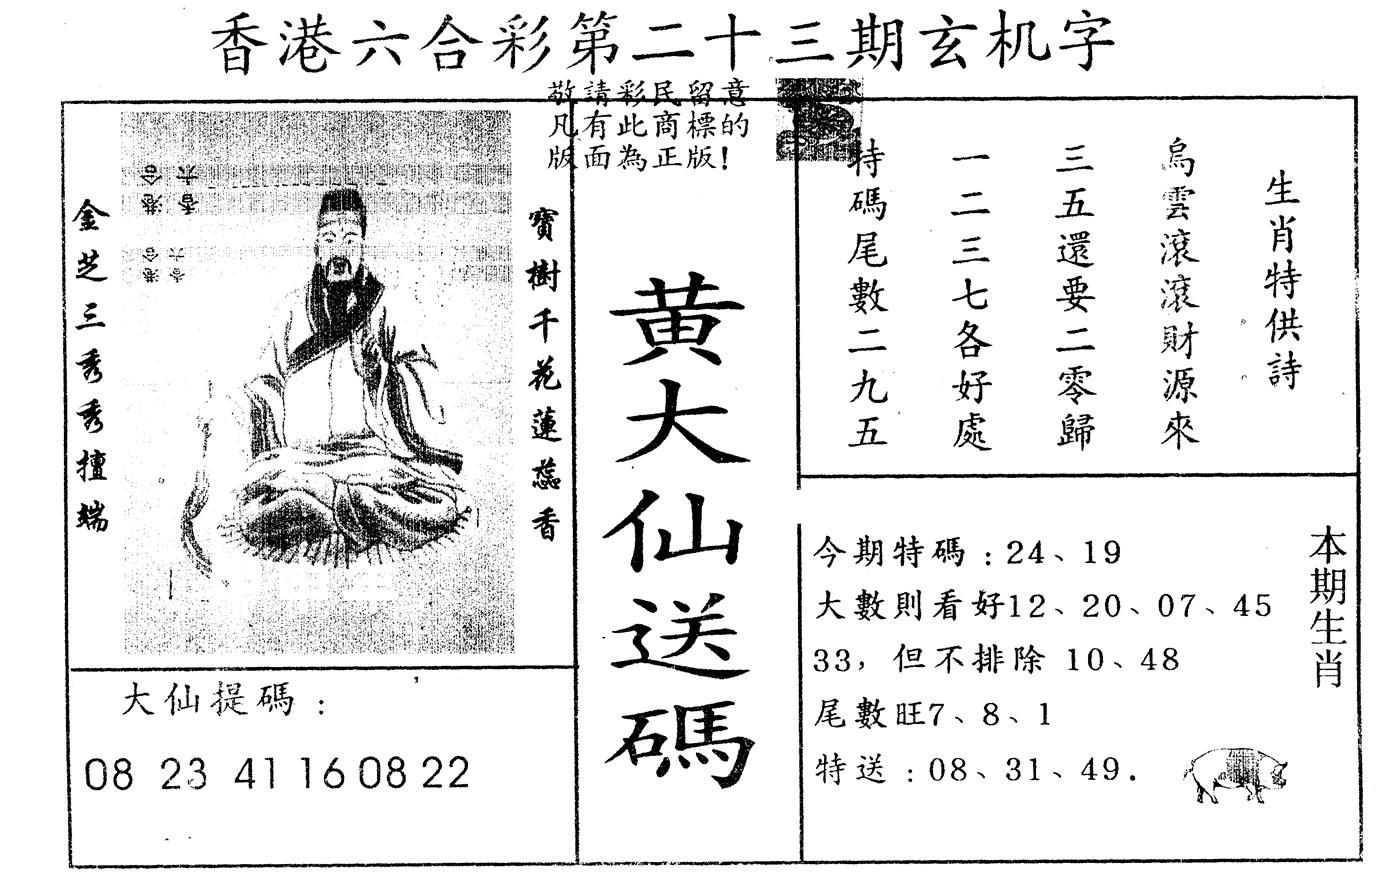 香港六合彩第二十三期玄机字
敬請彩民留意
凡有此商標的
版面為正版!
生肖特供詩
烏雲滾滾財源來
三五還要二零歸
一二三七各好處
特碼尾數二九五
寶樹千花蓮蕊香
金芝三秀秀擅端
香港六合
香港六合
黄大仙送碼
大仙提碼：
08 23 41 16 08 22
本期生肖
今期特碼：24、19
大數則看好12、20、07、45
33，但不排除 10、48
尾數旺7、8、1
特送：08、31、49.